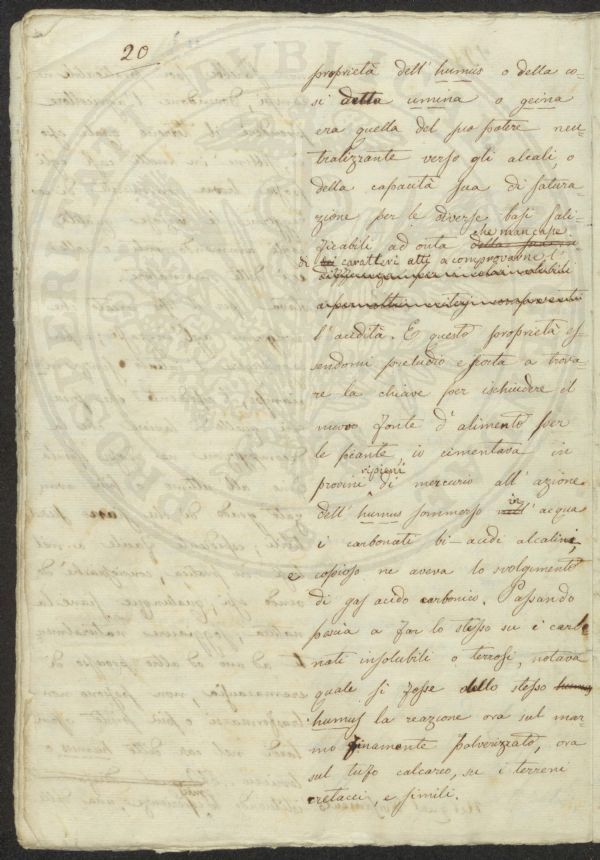 20
proprietà dell' humus o della co-
si detta umina o geina
era quella del suo potere neu-
tralizzante verso gli alcali, o
della capacità sua di satura-
zione per le diverse basi sali-
ficabili ad onta che mancasse
di caratteri atti a comprovarne l'
l' acidità. E questa proprietà es-
sendomi preludio e scorta a trova-
re la chiave per ischiudere il
nuovo fonte d' alimento per
le piante, io cimentava in
provini ripieni di mercurio all' azione
dell' humus sommerso in acqua
i carbonati bi-acidi alcalini,
e copioso ne aveva lo svolgimento
di gas acido carbonico. Passando
poscia a far lo stesso su i carbo
nati insolubili o terrosi, notava
quale si fosse dello stesso
humus la reazione ora sul mar-
mo finamente polverizzato, ora
sul tufo calcareo, su i terreni
cretacei, e simili.